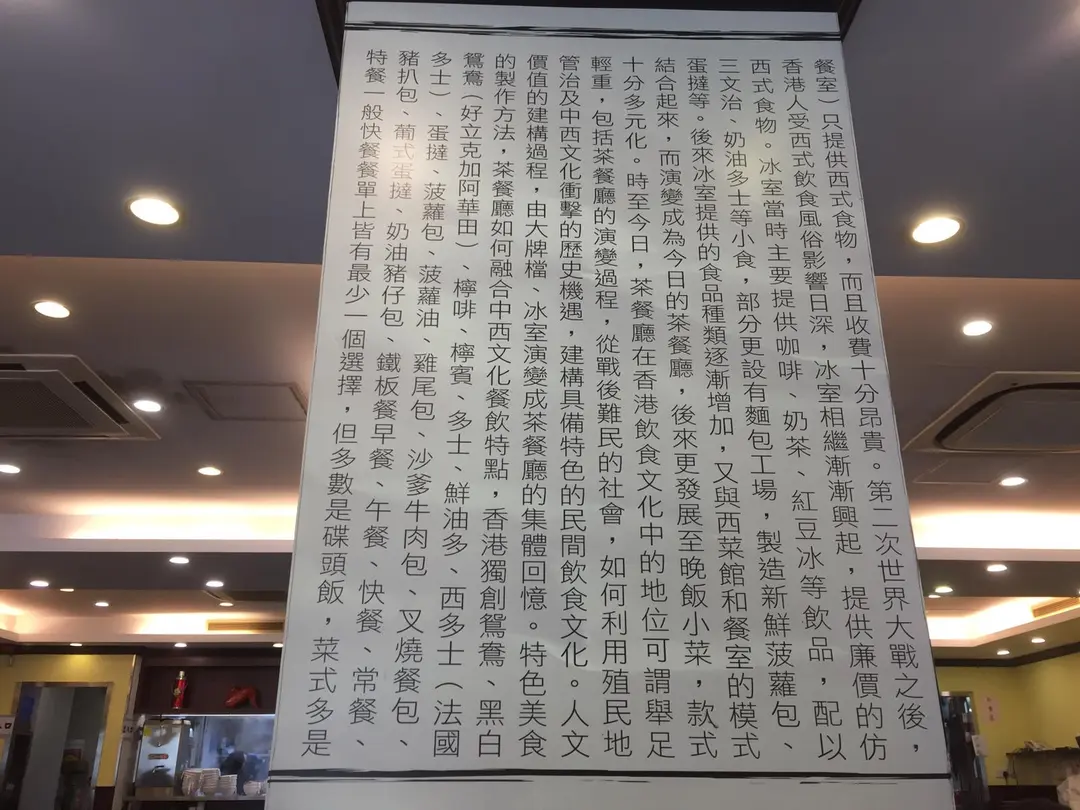 餐室）只提供西式食物，而且收費十分昂貴。第二次世界大戰之後，
香港人受西式飲食風俗影響日深，冰室相繼漸漸興起，提供廉價的仿
西式食物。冰室當時主要提供咖啡、奶茶、紅豆冰等飲品，配以
三文治、奶油多士等小食，部分更設有麵包工場，製造新鮮菠蘿包、
蛋撻等。後來冰室提供的食品種類逐漸增加，又與西菜館和餐室的模式
結合起來，而演變成為今日的茶餐廳，後來更發展至晚飯小菜，款式
十分多元化。時至今日，茶餐廳在香港飲食文化中的地位可謂舉足
輕重，包括茶餐廳的演變過程，從戰後難民的社會，如何利用殖民地
管治及中西文化衝擊的歷史機遇，建構具備特色的民間飲食文化。人文
價值的建構過程，由大牌檔、冰室演變成茶餐廳的集體回憶。特色美食
的製作方法，茶餐廳如何融合中西文化餐飲特點，香港獨創鴛鴦、黑白
鴛鴦（好立克加阿華田）、檸啡、檸賓、多士、鮮油多、西多士（法國
多士）、蛋撻、菠蘿包、菠蘿油、雞尾包、沙爹牛肉包、叉燒餐包、
豬扒包、葡式蛋撻、奶油豬仔包、鐵板餐早餐、午餐、快餐、常餐、
特餐一般快餐餐單上皆有最少一個選擇，但多數是碟頭飯，菜式多是